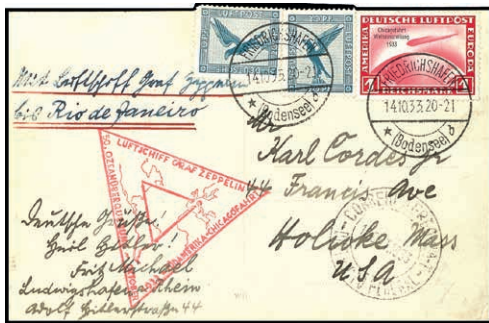 LUFTPOST LUFTPOST
DEUTSCHE LUFTPOST
AMERIKA
EUROPA
Chicagofahrt
Weltausstellung
1933
REICHSMARK
FRIEDRICHSHAFEN
14.10.33.20-21
(Bodensee) b
FRIEDRICHSHAFEN
14.10.33.20-21
(Bodensee) b
Mit Luftschiff Graf Zeppelin
bis Rio de Janeiro
LUFTSCHIFF GRAF ZEPPELIN
50. OZEANÜBERQUERUNG
Mr
Karl Cordes jr
44 Francis Ave
Holioke Mass
USA
Deutsche Grüße!
Heil Hitler!
Fritz Michael
Ludwigshafen a Rhein
Adolf Hitlerstraße 44